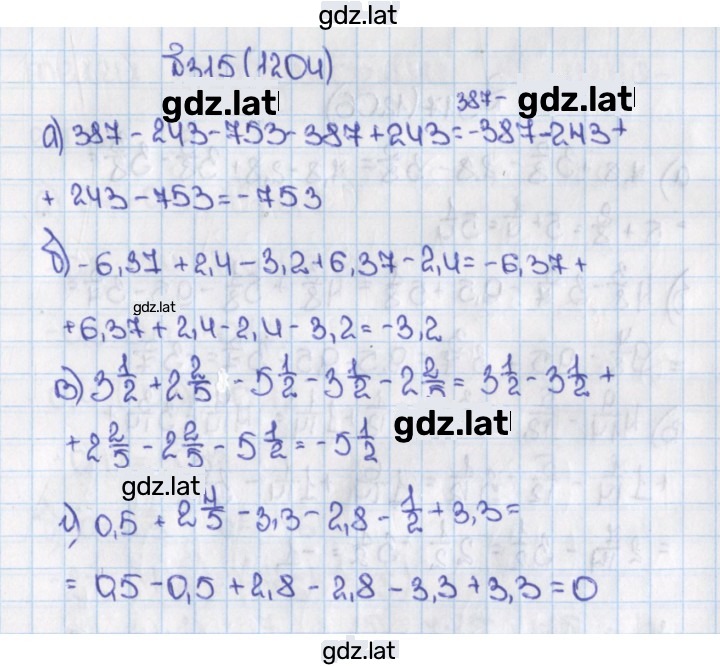 gdz.lat
В315 (1204)
gdz.lat 387 - gdz.lat
а) 387 - 243 - 753 - 387 + 243 = -387 - 243 +
+ 243 - 753 = - 753
б) - 6,37 + 2,4 - 3,2 + 6,37 - 2,4 = - 6,37 +
gdz.lat
+ 6,37 + 2,4 - 2,4 - 3,2 = - 3,2
в) 3 1/2 + 2 2/5 - 5 1/2 - 3 1/2 - 2 2/5 = 3 1/2 - 3 1/2 +
gdz.lat
+ 2 2/5 - 2 2/5 - 5 1/2 = - 5 1/2
gdz.lat
г) 0,5 + 2 4/5 - 3,3 - 2,8 - 1/2 + 3,3 =
= 0,5 - 0,5 + 2,8 - 2,8 - 3,3 + 3,3 = 0
gdz.lat